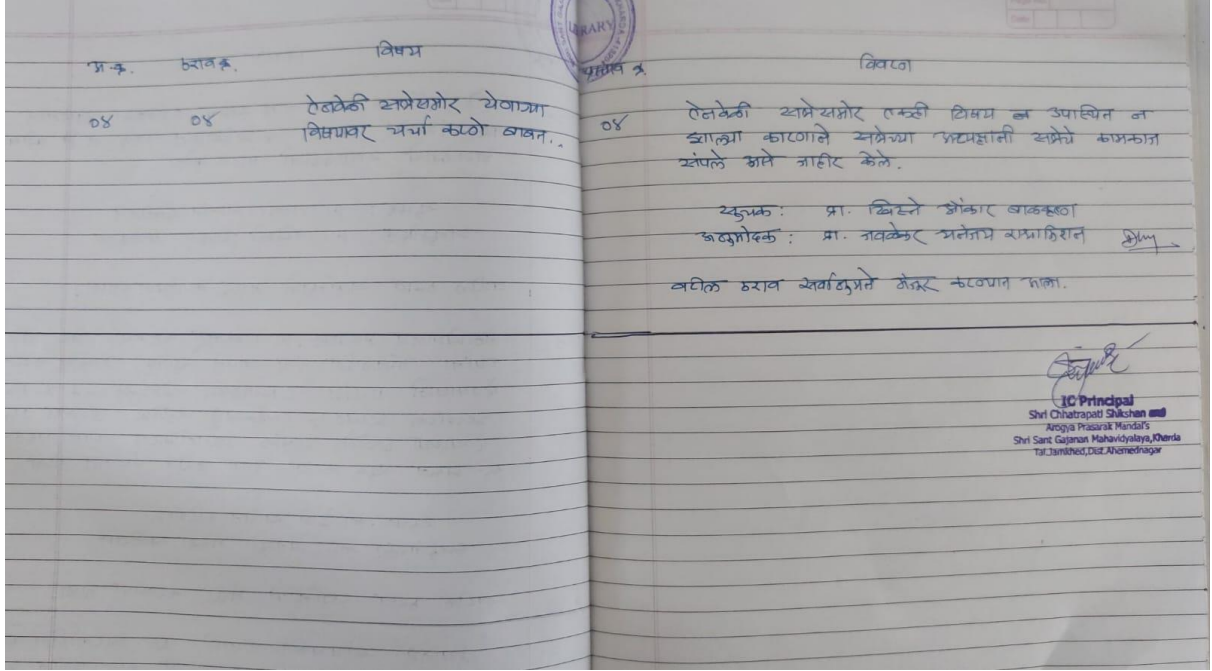 अ.क्र. ठराव क्र. विषय
०४ ०४ ऐनवेळी सभेसमोर येणाऱ्या
विषयावर चर्चा करणे बाबत..
LIBRARY
ठराव क्र. विवरण
०४ ऐनवेळी सभेसमोर एकही विषय न उपास्थित न
झाल्या कारणाने सभेच्या अध्यक्षांनी सभेचे कामकाज
संपले असे जाहीर केले.
सूचक : प्रा. खिस्ते ओंकार बाळकृष्ण
अनुमोदक : प्रा. जवळेकर धनंजय राधाकिशन
वरील ठराव सर्वानुमते मंजूर करण्यात आला.
IC Principal
Shri Chhatrapati Shikshan and
Arogya Prasarak Mandal's
Shri Sant Gajanan Mahavidyalaya,Kharda
Tal.Jamkhed,Dist.Ahemednagar